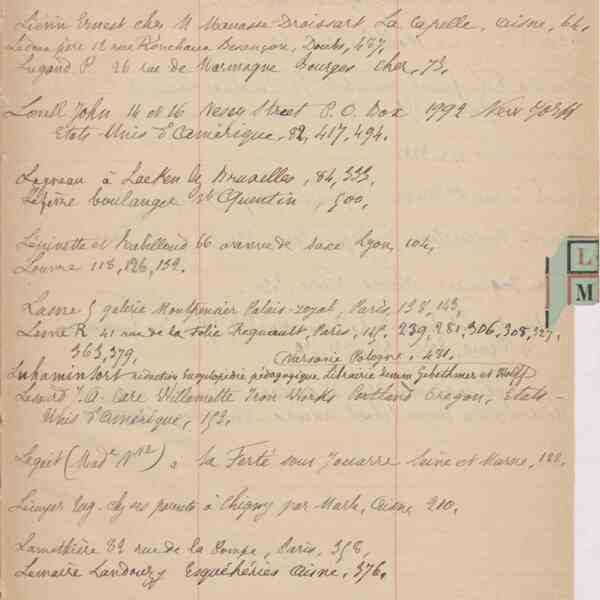 Liévin Ernest chez M Manasse Droissart, La Capelle, Aisne, 64,
père 12 rue Ronchaux Besançon, Doubs, 487,
Lugand P. 26 rue de Marmagne Bourges Cher, 73,
Lovell John 14 et 16 Vesey Street P. O. Box 1992 New York
Etats-Unis d'Amérique, 82, 417, 494,
Lagneau à Laeken lz Bruxelles, 84, 333,
boulanger St Quentin, 500,
et 66 avenue de Saxe Lyon, 104,
Louvre 118, 126, 132.
Lasne 5 galerie Montpensier Palais-royal, Paris, 138, 143,
Lesne R 41 rue de la Folie Regnault, Paris, 145, 239, 281, 306, 308, 327,
363, 379,
Varsovie Pologne, 481.
rédaction Encyclopédie pédagogique Librairie Gebethner et Wolff
J. A. Care Willamette Iron Works Portland Oregon, Etats-
Unis d'Amérique, 152.
(Made Nve) à La Ferté sous Jouarre Seine et Marne, 188.
Eug. chez ses parents à Chigny par Marle, Aisne 210,
Lamothière 82 rue de la Pompe, Paris, 358,
Lemaire Landouzy Esquéhéries Aisne, 376,
L
M